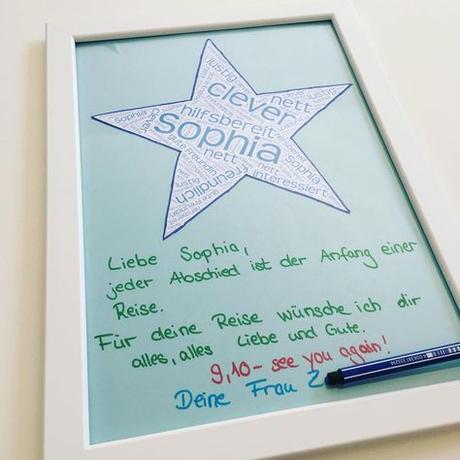 lustig
clever
nett
lustig
hilfsbereit
sophia
sophia
clever
gute Freundin
nett
nett
Sophia
freundlich
interessiert
Liebe Sophia,
jeder Abschied ist der Anfang einer
Reise.
Für deine Reise wünsche ich dir
alles, alles Liebe und Gute.
9,10 - see you again!
Deine Frau Z